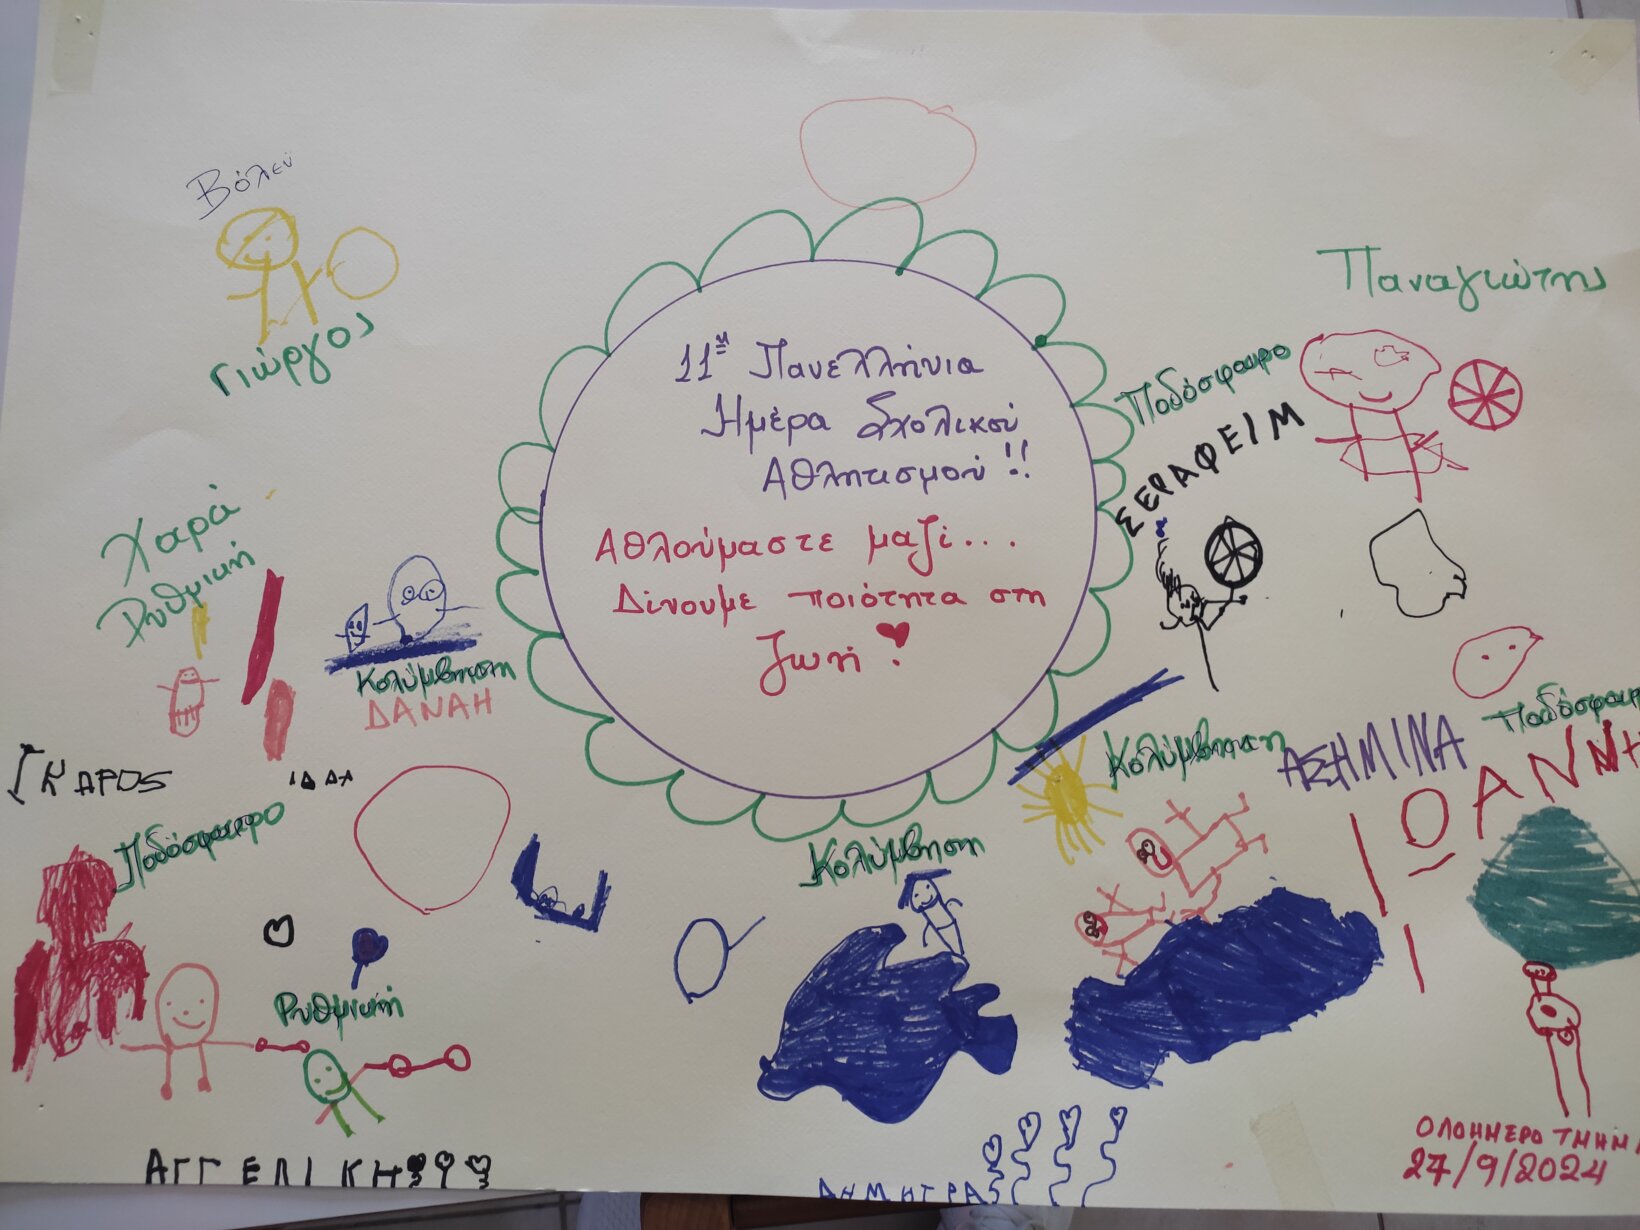 Βόλεϋ
Γιώργος
11η Πανελλήνια
Ημέρα Σχολικού
Αθλητισμού !!
Αθλούμαστε μαζί...
Δίνουμε ποιότητα στη
ζωή
Παναγιώτης
Ποδόσφαιρο
ΣΕΡΑΦΕΙΜ
Χαρά
Ρυθμική
Κολύμβηση
ΔΑΝΑΗ
Κολύμβηση
ΑΣΗΜΙΝΑ
Ποδόσφαιρ
ΙΩΑΝΝΗ
ΙΚΑΡΟΣ
Ποδόσφαιρο
Κολύμβηση
Ρυθμική
ΑΓΓΕΛΙΚΗ
ΔΗΜΗΤΡΑ
ΟΛΟΗΜΕΡΟ ΤΜΗΜΑ
27/9/2024